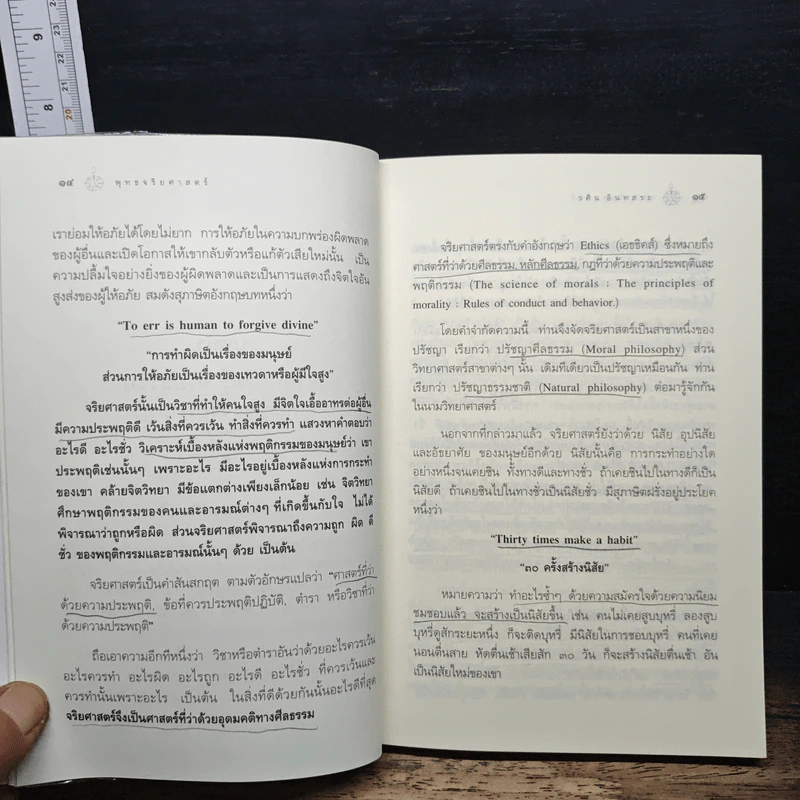 9
8
20
21
๑๔ พุทธจริยศาสตร์
เราย่อมให้อภัยได้โดยไม่ยาก การให้อภัยในความบกพร่องผิดพลาด
ของผู้อื่นและเปิดโอกาสให้เขากลับตัวหรือแก้ตัวเสียใหม่นั้น เป็น
ความปลื้มใจอย่างยิ่งของผู้ผิดพลาดและเป็นการแสดงถึงจิตใจอัน
สูงส่งของผู้ให้อภัย สมดังสุภาษิตอังกฤษบทหนึ่งว่า
“To err is human to forgive divine”
“การทำผิดเป็นเรื่องของมนุษย์
ส่วนการให้อภัยเป็นเรื่องของเทวดาหรือผู้มีใจสูง”
จริยศาสตร์นั้นเป็นวิชาที่ทำให้คนใจสูง มีจิตใจเอื้ออาทรต่อผู้อื่น
มีความประพฤติดี เว้นสิ่งที่ควรเว้น ทำสิ่งที่ควรทำ แสวงหาคำตอบว่า
อะไรดี อะไรชั่ว วิเคราะห์เบื้องหลังแห่งพฤติกรรมของมนุษย์ว่า เขา
ประพฤติเช่นนั้นๆ เพราะอะไร มีอะไรอยู่เบื้องหลังแห่งการกระทำ
ของเขา คล้ายจิตวิทยา มีข้อแตกต่างเพียงเล็กน้อย เช่น จิตวิทยา
ศึกษาพฤติกรรมของคนและอารมณ์ต่างๆ ที่เกิดขึ้นกับใจ ไม่ได้
พิจารณาว่าถูกหรือผิด ส่วนจริยศาสตร์พิจารณาถึงความถูก ผิด ดี
ชั่ว ของพฤติกรรมและอารมณ์นั้นๆ ด้วย เป็นต้น
จริยศาสตร์เป็นคำสันสกฤต ตามตัวอักษรแปลว่า “ศาสตร์ที่ว่า
ด้วยความประพฤติ, ข้อที่ควรประพฤติปฏิบัติ, ตำรา หรือวิชาที่ว่า
ด้วยความประพฤติ”
ถือเอาความอีกทีหนึ่งว่า วิชาหรือตำราอันว่าด้วยอะไรควรเว้น
อะไรควรทำ อะไรผิด อะไรถูก อะไรดี อะไรชั่ว ที่ควรเว้นและ
ควรทำนั้นเพราะอะไร เป็นต้น ในสิ่งที่ดีด้วยกันนั้นอะไรดีที่สุด
จริยศาสตร์จึงเป็นศาสตร์ที่ว่าด้วยอุดมคติทางศีลธรรม
วศิน อินทสระ ๑๕
จริยศาสตร์ตรงกับคำอังกฤษว่า Ethics (เอธธิคส์) ซึ่งหมายถึง
ศาสตร์ที่ว่าด้วยศีลธรรม, หลักศีลธรรม, กฎที่ว่าด้วยความประพฤติและ
พฤติกรรม (The science of morals : The principles of
morality : Rules of conduct and behavior.)
โดยคำจำกัดความนี้ ท่านจึงจัดจริยศาสตร์เป็นสาขาหนึ่งของ
ปรัชญา เรียกว่า ปรัชญาศีลธรรม (Moral philosophy) ส่วน
วิทยาศาสตร์สาขาต่างๆ นั้น เดิมทีเดียวเป็นปรัชญาเหมือนกัน ท่าน
เรียกว่า ปรัชญาธรรมชาติ (Natural philosophy) ต่อมารู้จักกัน
ในนามวิทยาศาสตร์
นอกจากที่กล่าวมาแล้ว จริยศาสตร์ยังว่าด้วย นิสัย อุปนิสัย
และอัธยาศัย ของมนุษย์อีกด้วย นิสัยนั้นคือ การกระทำอย่างใด
อย่างหนึ่งจนเคยชิน ทั้งทางดีและทางชั่ว ถ้าเคยชินไปในทางดีก็เป็น
นิสัยดี ถ้าเคยชินไปในทางชั่วเป็นนิสัยชั่ว มีสุภาษิตฝรั่งอยู่ประโยค
หนึ่งว่า
“Thirty times make a habit”
“๓๐ ครั้งสร้างนิสัย”
หมายความว่า ทำอะไรซ้ำๆ ด้วยความสมัครใจด้วยความนิยม
ชมชอบแล้ว จะสร้างเป็นนิสัยขึ้น เช่น คนไม่เคยสูบบุหรี่ ลองสูบ
บุหรี่ดูสักระยะหนึ่ง ก็จะติดบุหรี่ มีนิสัยในการชอบบุหรี่ คนที่เคย
นอนตื่นสาย หัดตื่นเช้าเสียสัก ๓๐ วัน ก็จะสร้างนิสัยตื่นเช้า อัน
เป็นนิสัยใหม่ของเขา